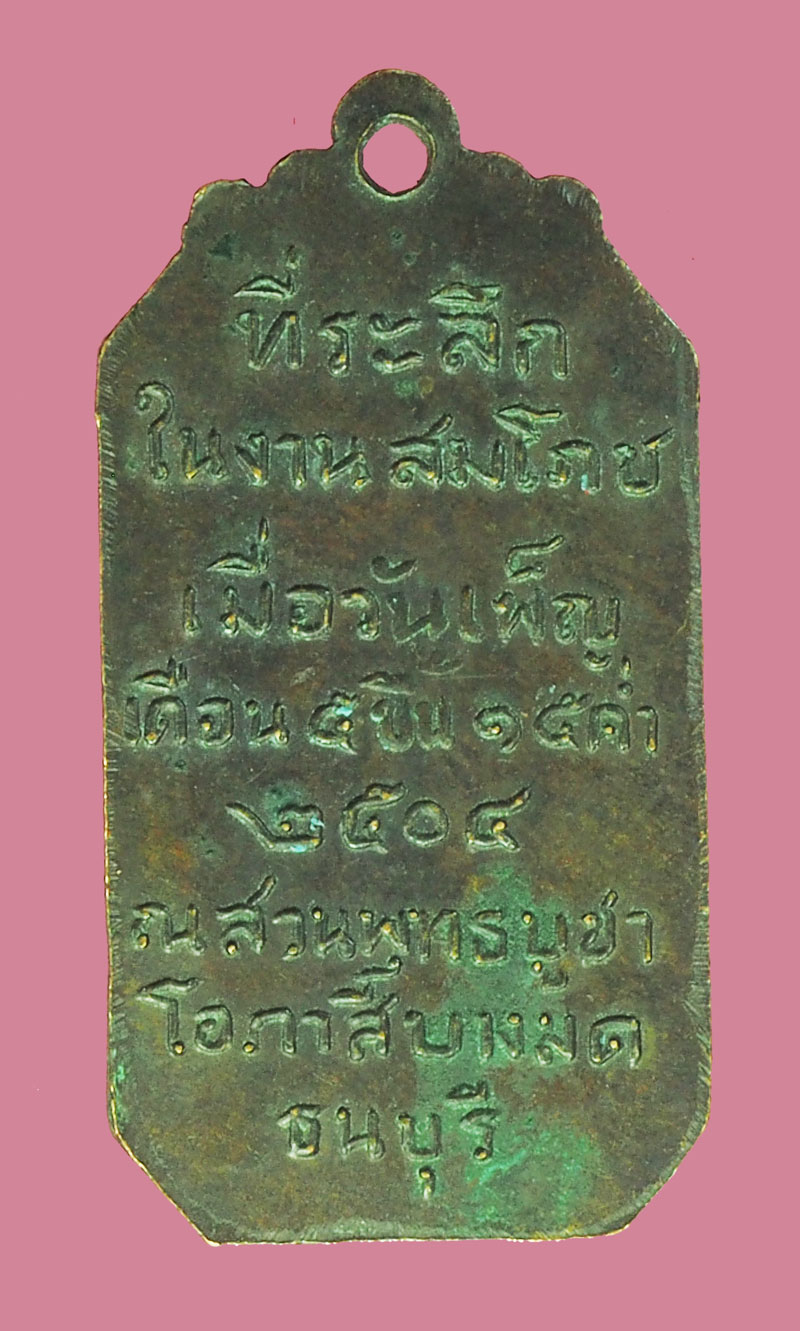 ที่ระลึก
ในงานสมโภช
เมื่อวันเพ็ญ
เดือน ๕ ขึ้น ๑๕ ค่ำ
๒๕๐๔
ณ สวนพุทธบูชา
โอภาสี บางมด
ธนบุรี